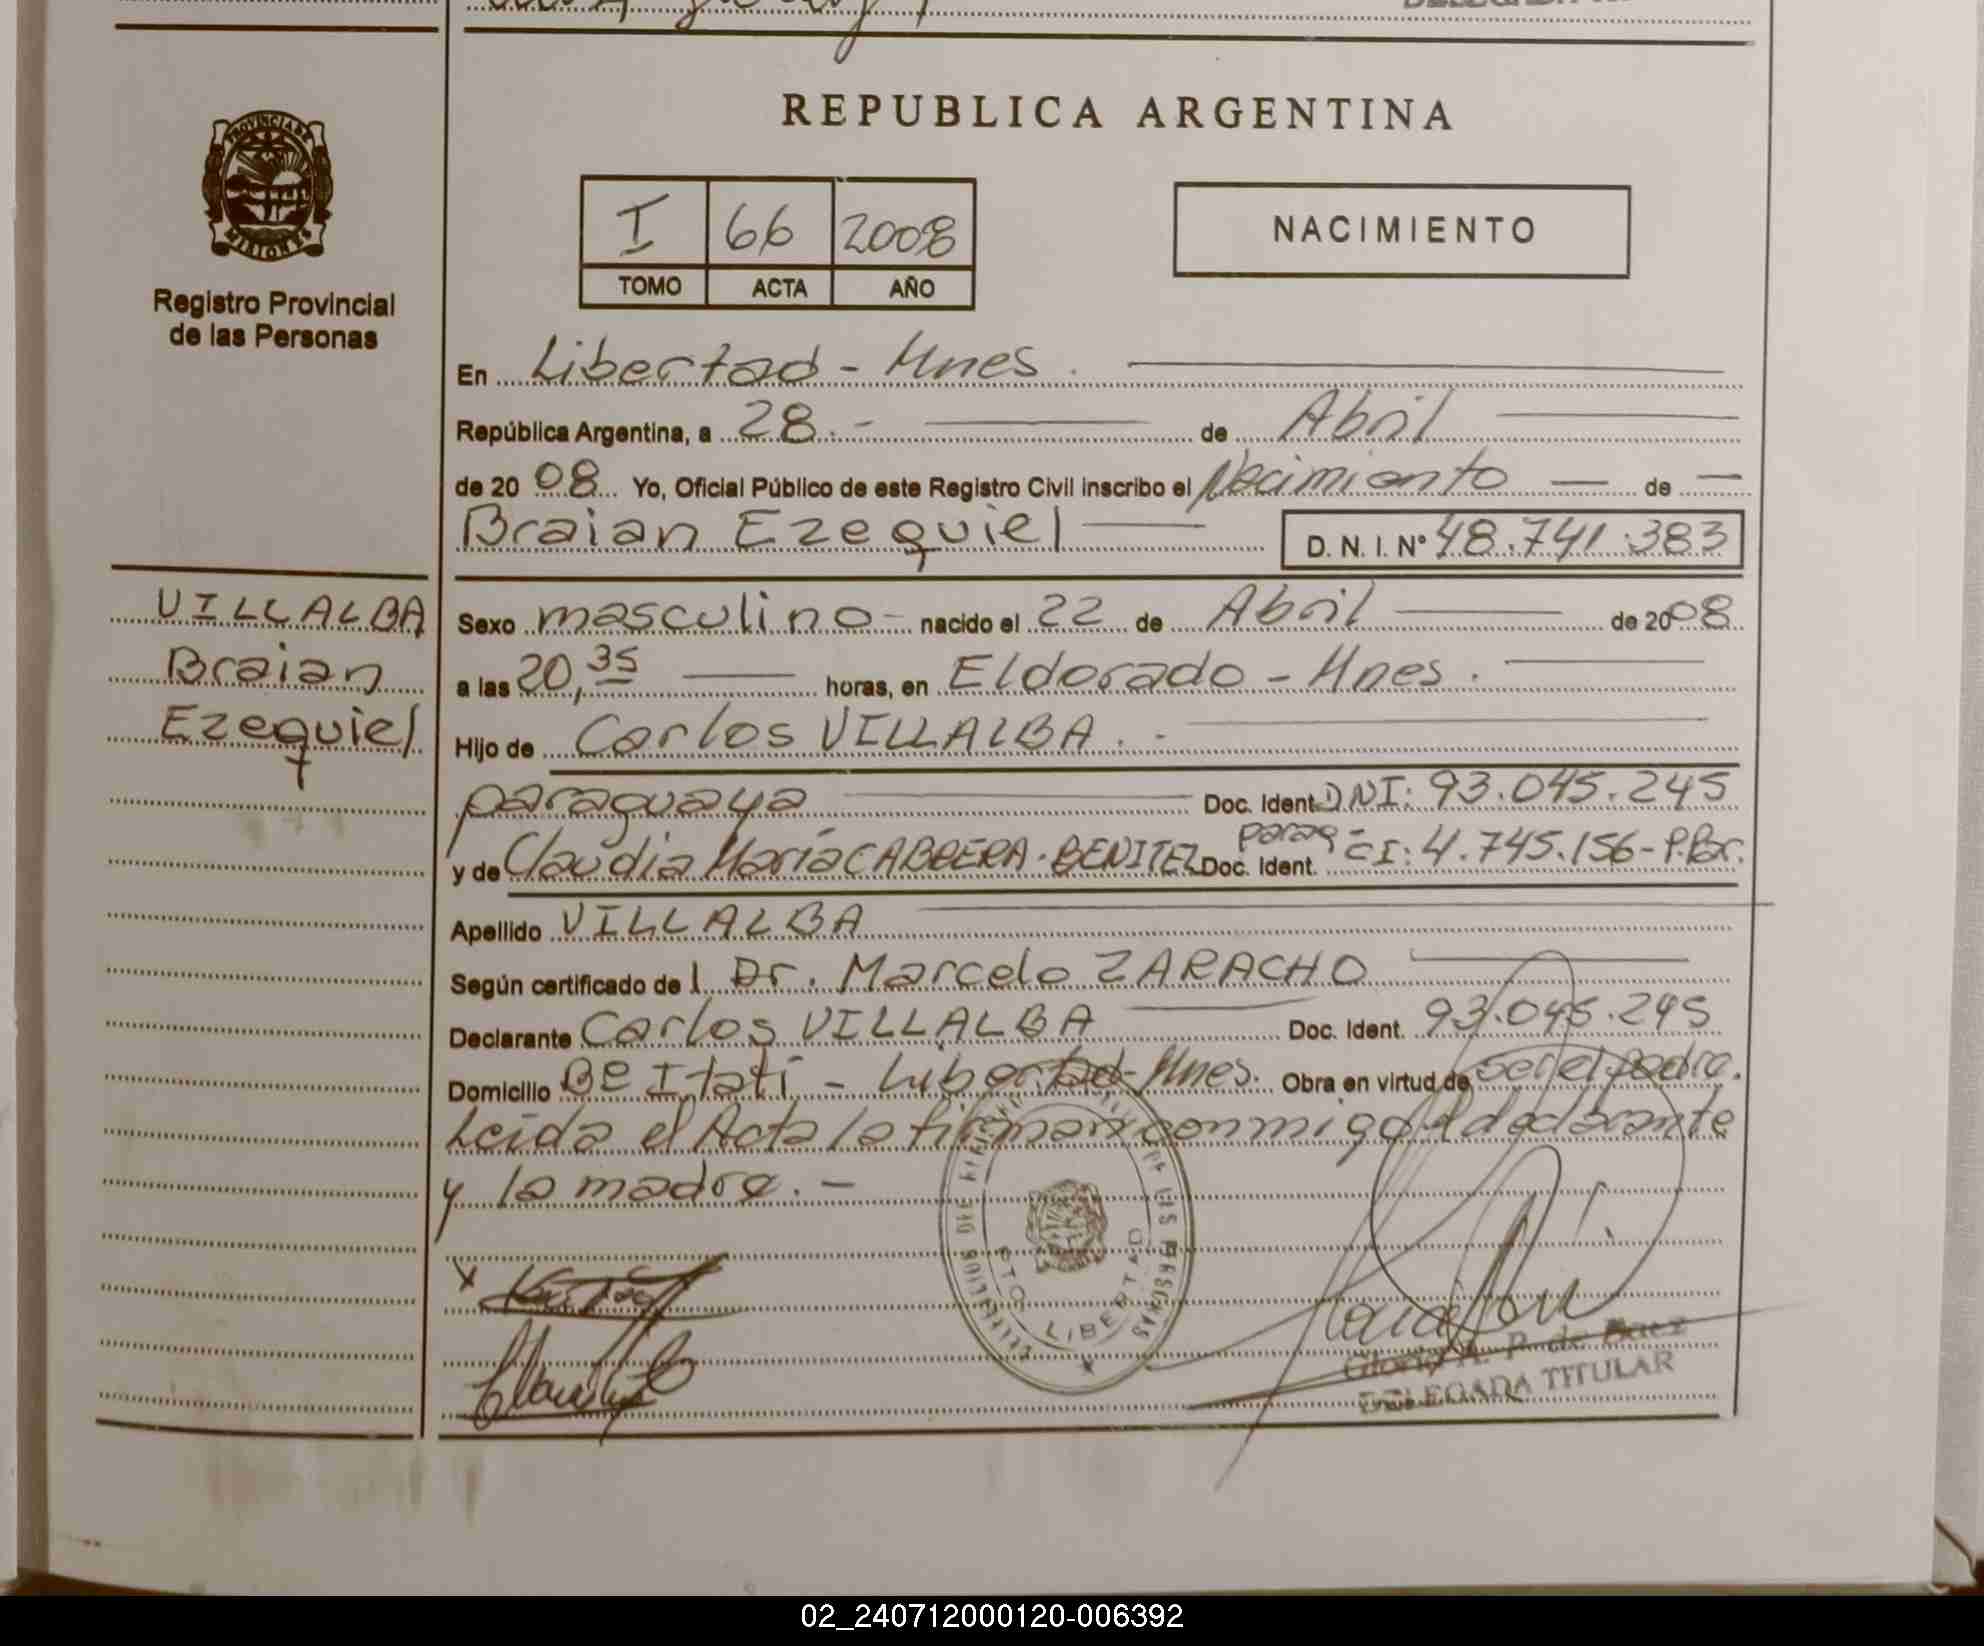 REPUBLICA ARGENTINA
PROVINCIA DE
MISIONES
Registro Provincial
de las Personas
I 66 2008
TOMO ACTA AÑO
NACIMIENTO
En Libertad - Mnes.
República Argentina, a 28.- de Abril
de 2008 Yo, Oficial Público de este Registro Civil inscribo el Nacimiento — de —
Braian Ezequiel D. N. I. Nº 48.741.383
VILLALBA
Braian
Ezequiel
Sexo masculino - nacido el 22 de Abril de 2008
a las 20,35 horas, en Eldorado - Mnes.
Hijo de Carlos VILLALBA. -
paraguaya Doc. Ident. DNI: 93.045.245
y de Claudia María CABRERA - BENITEZ Doc. Ident. parag CI: 4.745.156-P.Br.
Apellido VILLALBA
Según certificado de l Dr. Marcelo ZARACHO
Declarante Carlos VILLALBA Doc. Ident. 93.045.245
Domicilio Bº Itatí - Libertad - Mnes. Obra en virtud de ser el padre.
Leída el Acta la firman conmigo el declarante
y la madre. -
LIBERTAD
Gloria A. P. de Baez
DELEGADA TITULAR
02_240712000120-006392